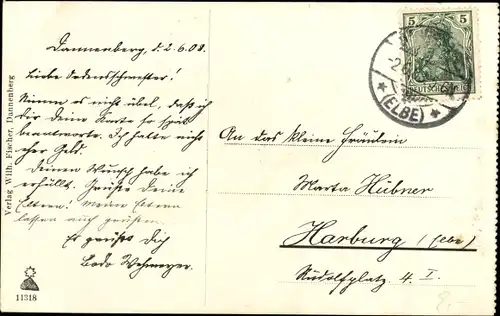 Dannenberg, d. 2.6.08.
Liebe Ordensschwester!
Nimm es nicht übel, daß ich
dir deine Karte so spät
beantworte. Ich hatte nicht
eher Geld.
Deinen Wunsch habe ich
erfüllt. Grüße Deine
Eltern! Meine Eltern
lassen auch grüßen.
Es grüßt Dich
Bodo Wehmeyer.
Verlag Wilh. Fischer, Dannenberg
11318
5 5
DEUTSCHES REICH
(ELBE)
An das kleine Fräulein
Marta Hübner
Harburg (Elbe)
Rudolfplatz 4. I.
8.-